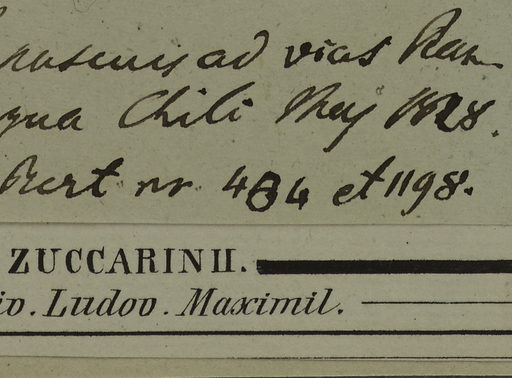 pascuis ad vias Ran-
gua Chili May 1828.
Bert nr 434 et 1198.
ZUCCARINII.
iv. Ludov. Maximil.